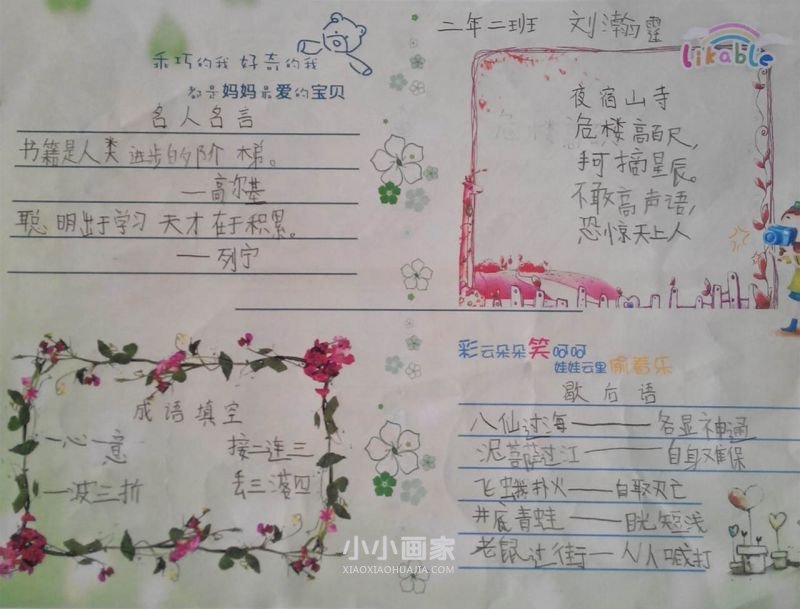 二年二班 刘瀚霆
乖巧的我 好奇的我
都是妈妈最爱的宝贝
名人名言
书籍是人类进步的阶梯。
——高尔基
聪明出于学习 天才在于积累。
——列宁
likable
夜宿山寺
危楼高百尺,
手可摘星辰。
不敢高声语,
恐惊天上人
成语填空
一心一意 接二连三
一波三折 丢三落四
彩云朵朵笑呵呵
娃娃云里偷着乐
歇后语
八仙过海——各显神通
泥菩萨过江——自身难保
飞蛾扑火——自取灭亡
井底青蛙——目光短浅
老鼠过街—人人喊打
小小画家
XIAOXIAOHUAJIA.COM